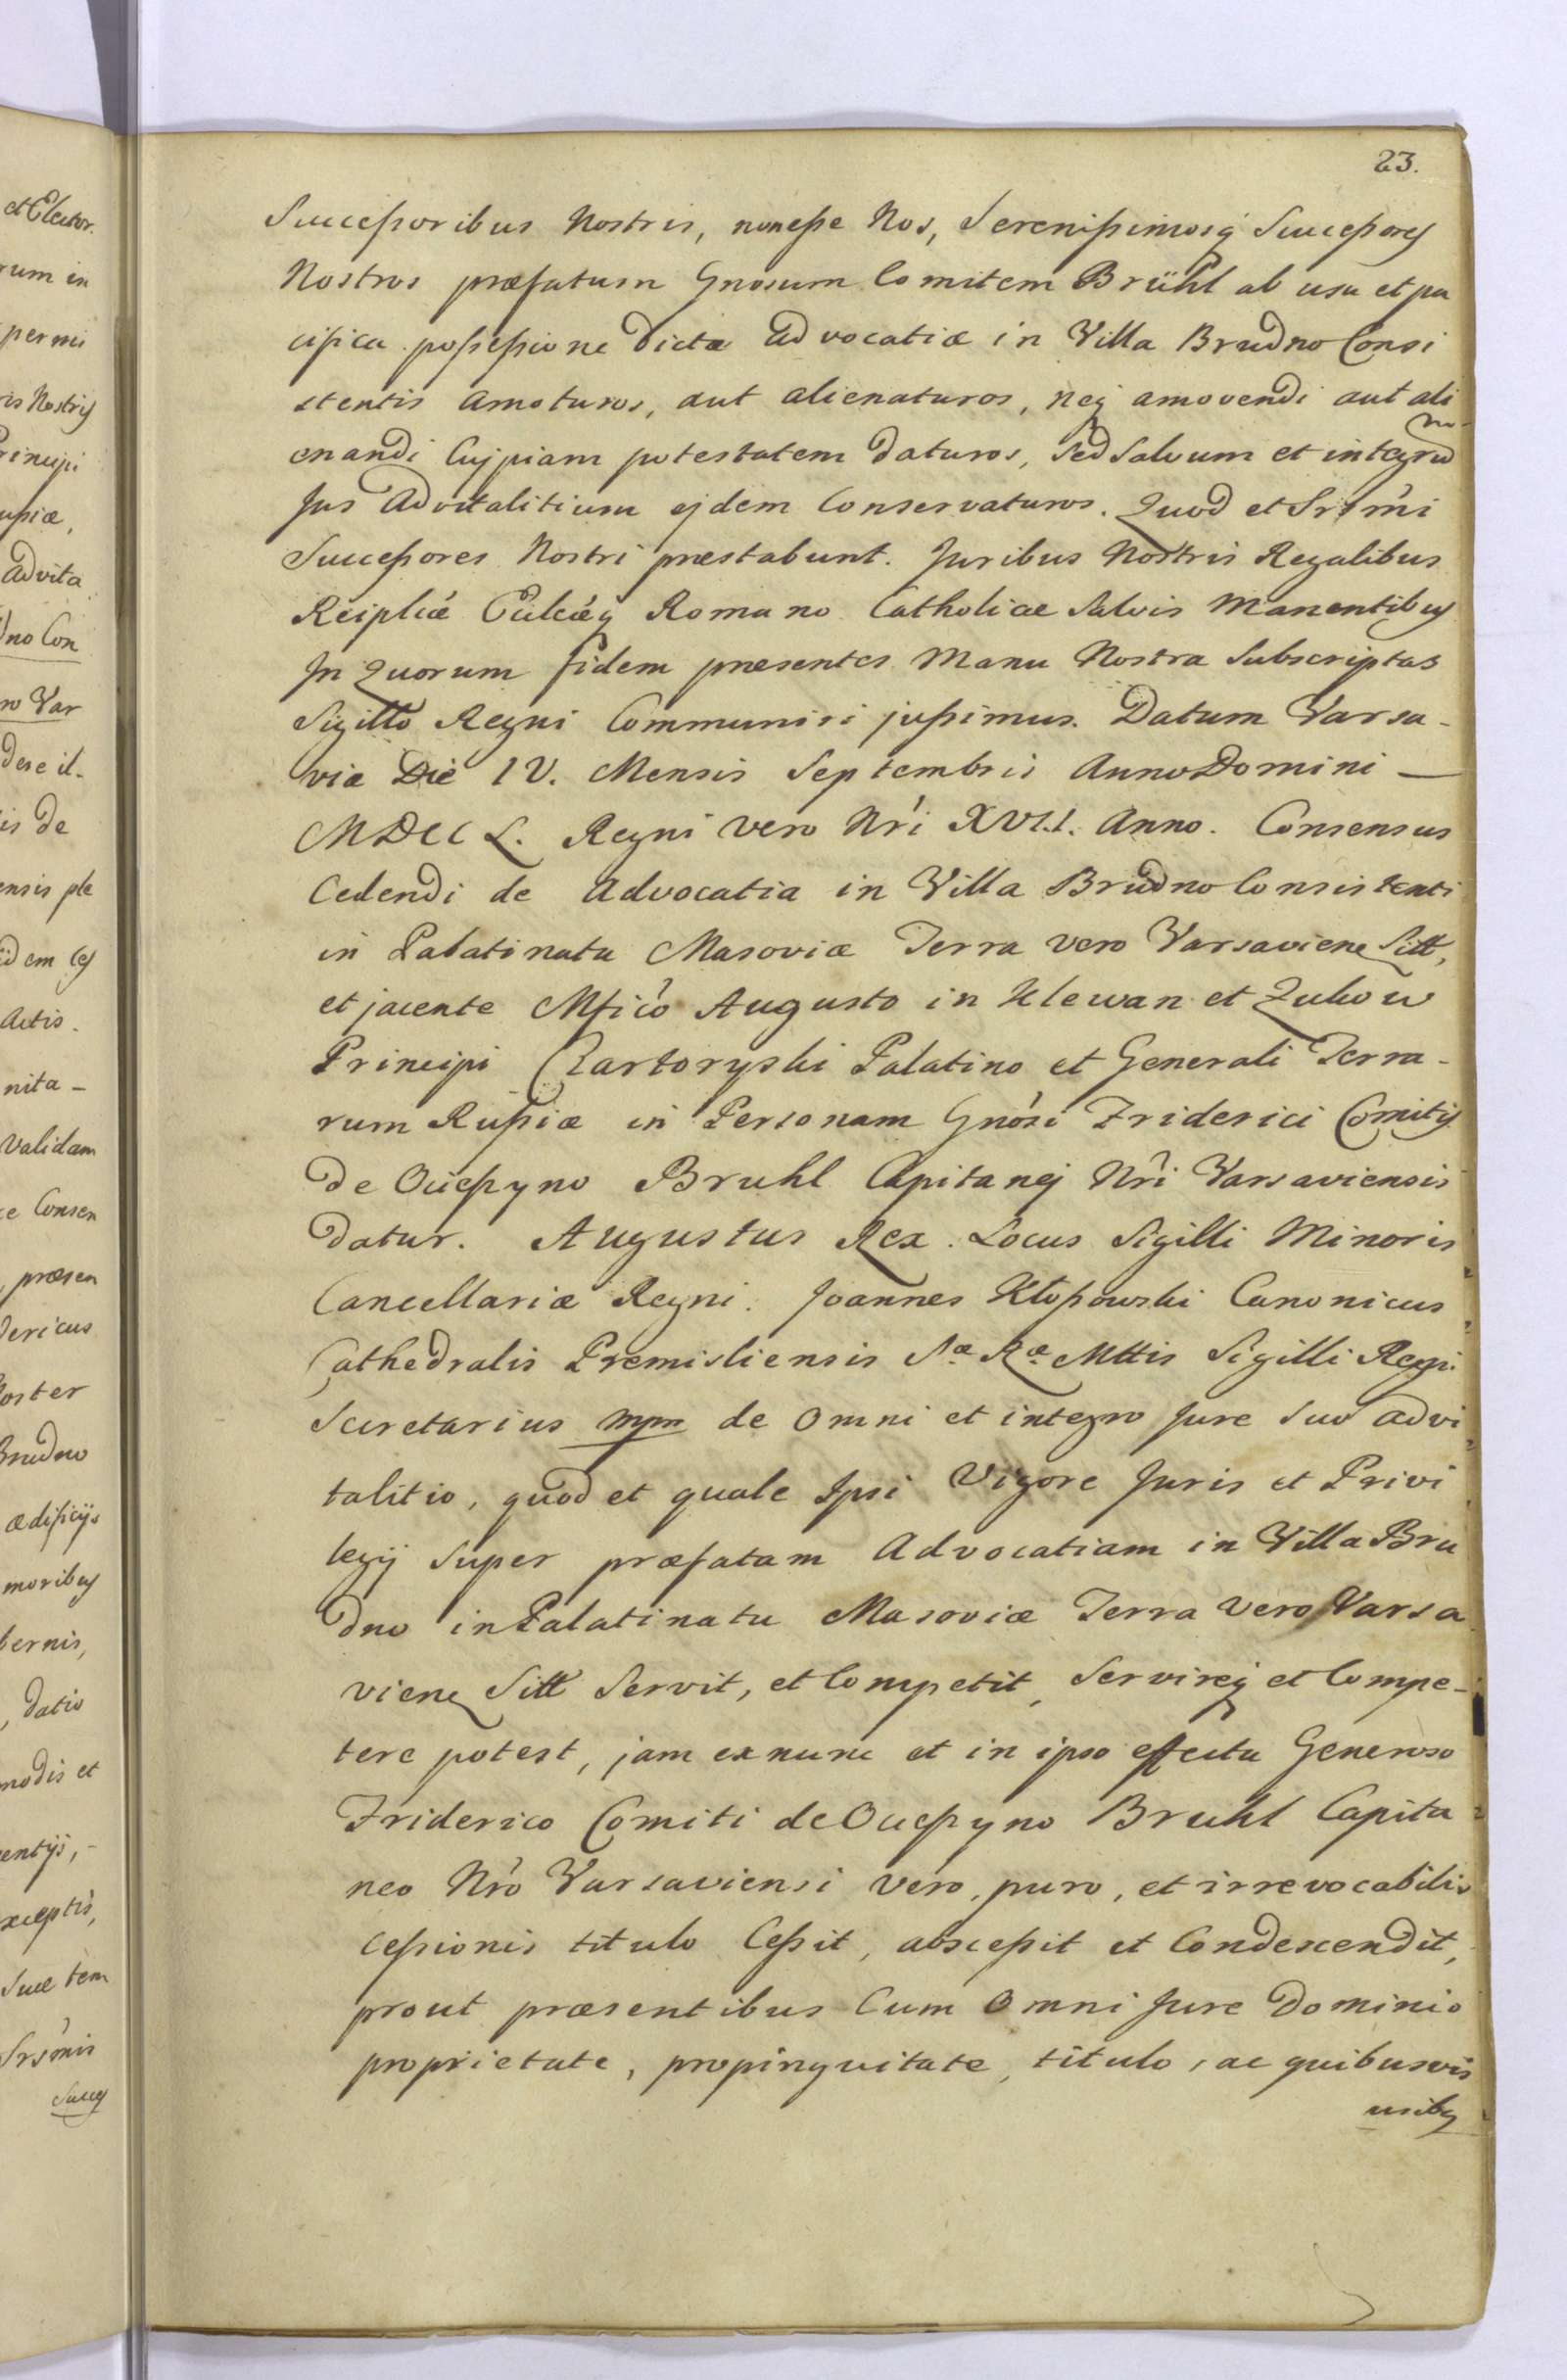 23.
Succeſsoribus Nostris, noneſse Nos, Sereniſsimosq Succeſsores
Nostros præfatum Gnosum Comitem Brühl ab usu et pa
cifica poſseſsione dictæ advocatiæ in Villa Brudno Consi
stentis amoturos, aut alienaturos, neq amovendi aut ali
enandi Cujpiam potestatem daturos, sed salvum et integrum
Jus advitalitium ejdem Conservaturos. Quod et Srsmi
Succeſsores Nostri præstabunt. Juribus Nostris Regalibus
Reiplicæ Eulcæq Romano Catholicæ Salvis manentibus
In Quorum fidem præsentes Manu Nostra Subscriptas
Sigillo Regni Communiri juſsimus. Datum Varsa-
viæ Die IV. Mensis Septembris Anno Domini —
MDCCL. Regni vero Nri XVII. Anno. Consensus
Cedendi de Advocatia in Villa Brudno Consistenti
in Palatinatu Masoviæ Terra vero Varsavien Sitt,
et jacente Mfico Augusto in Klewan et Zukow
Principi Czartoryski Palatino et Generali Terra-
rum Ruſsiæ in Personam Gnosi Friderici Comitis
de Ocieſzyno Bruhl Capitanej Nri Varsaviensis
datur. Augustus Rex. Locus Sigilli Minoris
Cancellariæ Regni. Joannes Kłopowski Canonicus
Cathedralis Premisliensis Sæ Ræ Mttis Sigilli Regni
Secretarius mpm de Omni et integro Jure Suo advi
talitio, quod et quale Ipsi Vigore Juris et Privi
legij Super præfatam Advocatiam in Villa Bru
dno in Palatinatu Masoviæ Terra vero Varsa
vien Sitt Servit, et Competit, Servireq et Compe-
tere potest, jam exnunc et in ipso effectu Generoso
Friderico Comiti de Ocieſzyno Bruhl Capita
neo Nro Varsaviensi vero, puro, et irrevocabilis
ceſsionis titulo Ceſsit, absceſsit et Condescendit,
prout præsentibus Cum Omni Jure Dominio
proprietate, propinquitate, titulo, ac quibusvis
usibq